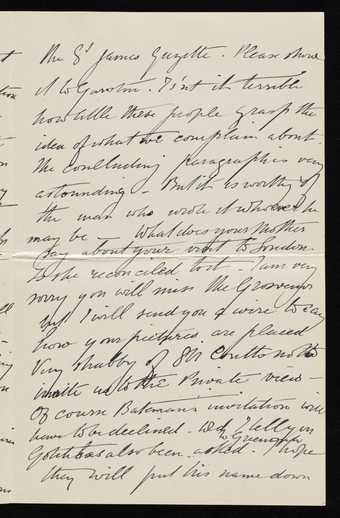 the St James Gazette. Please show
it to Gareth. Isn't it terrible
how little these people grasp the
idea of what we complain about.
The concluding paragraph is very
astounding – But it is worthy of
the man who wrote it whoever he
may be – What does your Mother
say about your visit to London.
Is she reconciled to it. I am very
sorry you will miss the Grosvenor
but I will send you a wire to say
how your pictures are placed
Very shabby of Sir Coutts not to
invite us to the Private view
Of course Bateman's invitation will
have to be declined.
has also been asked. I hope
they will put his name down